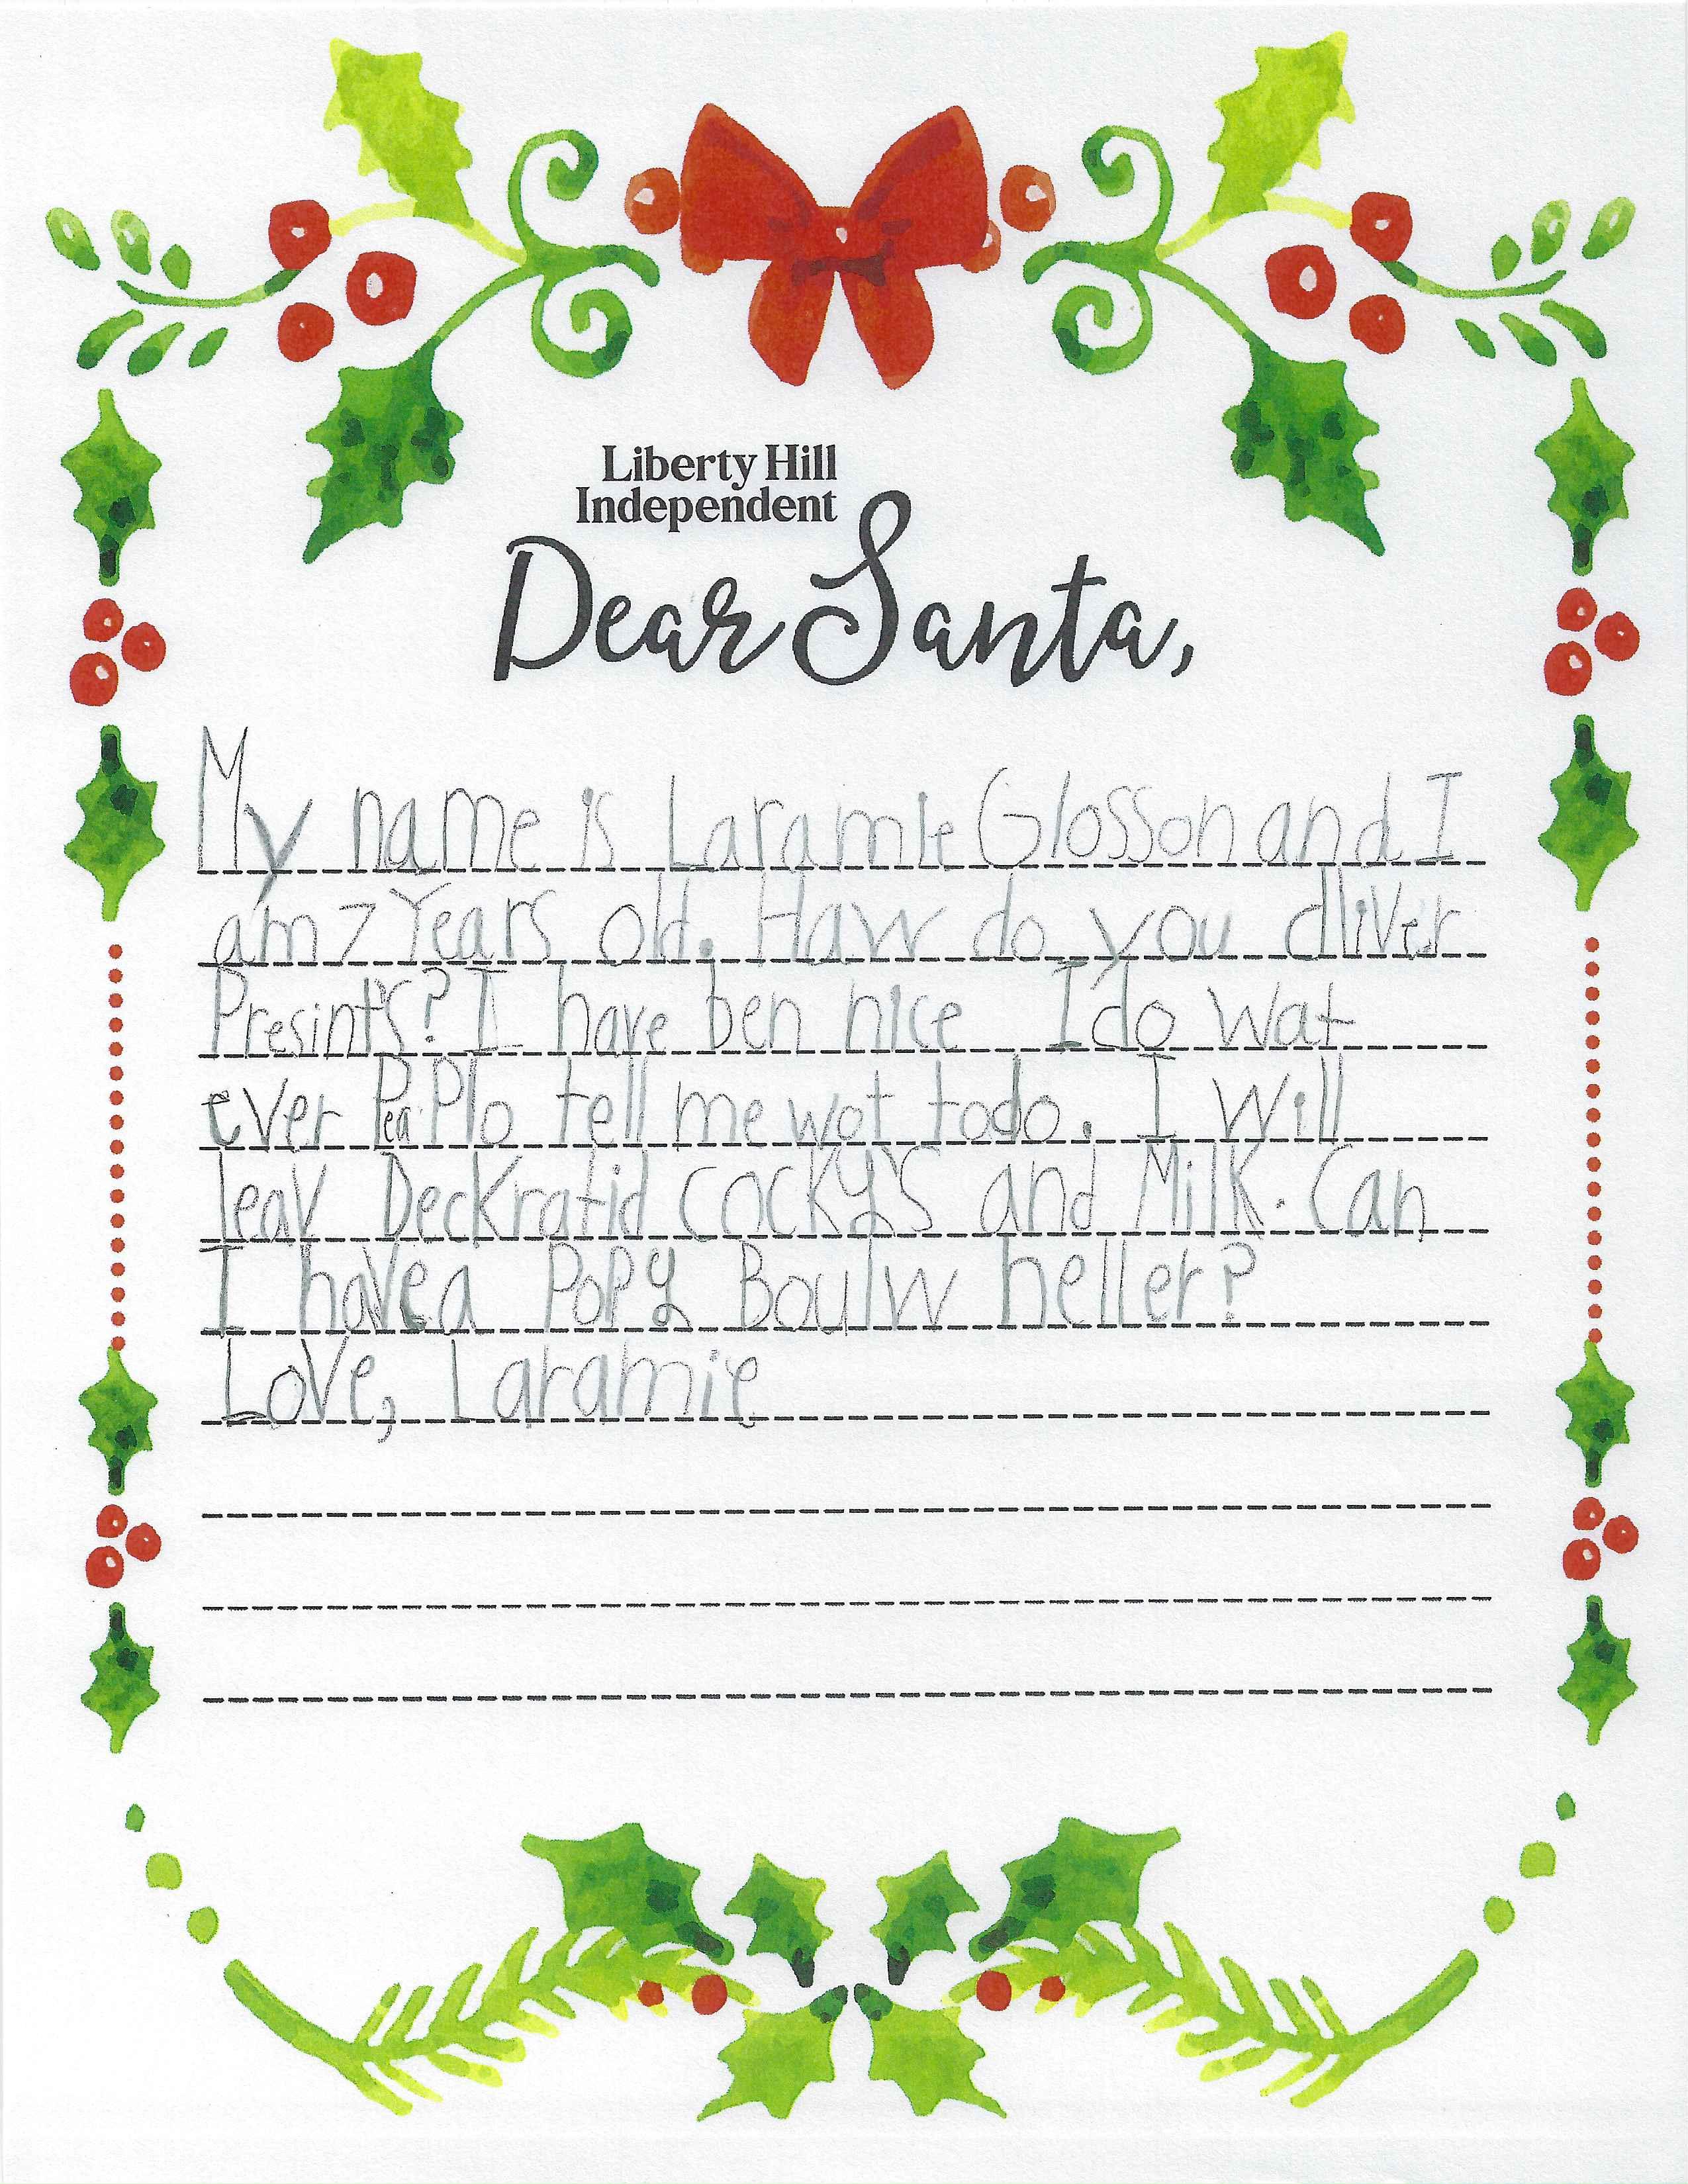 Liberty Hill
Independent
Dear Santa,
My name is Laramie Glosson and I
am 7 Years old. Haw do you dliver
Presints? I have ben nice I do wat
ever PeaPlo tell me wot todo. I will
leav Deckratid cocky's and Milk. Can
I have a PoPy Boulw heller?
Love, Laramie